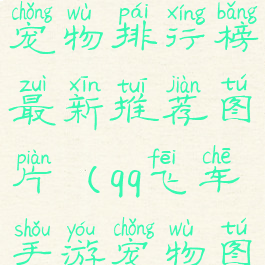 chǒng wù pái xíng bǎng
宠物排行榜
zuì xīn tuī jiàn tú
最新推荐图
piàn fēi chē
片(qq飞车
shǒu yóu chǒng wù tú
手游宠物图